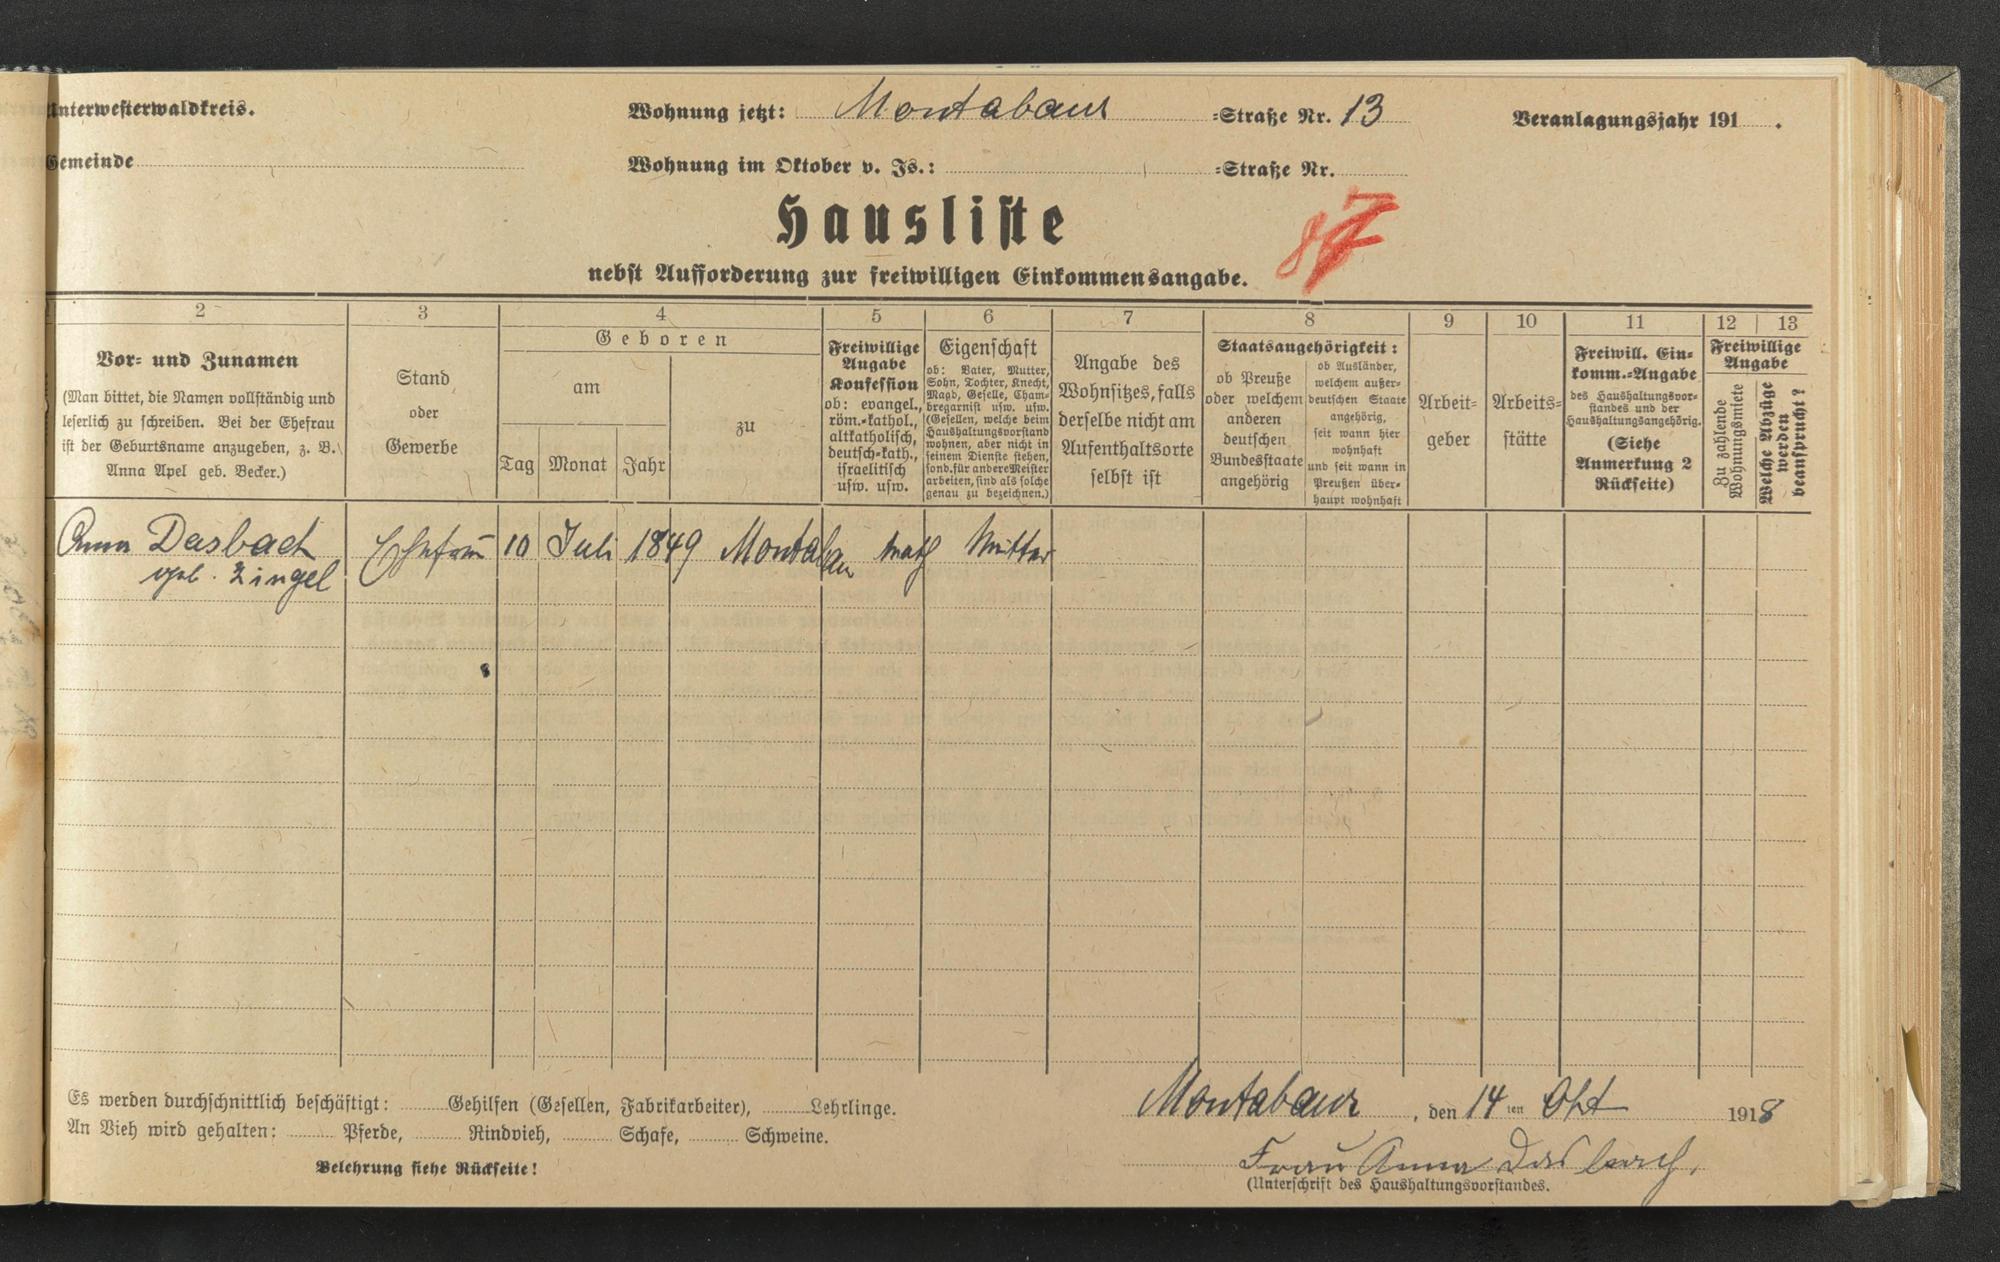 Unterwesterwaldkreis.
Wohnung jetzt: Montabaur -Straße Nr. 13
Veranlagungsjahr 191 .
Gemeinde
Wohnung im Oktober v. Js.: -Straße Nr.
Hausliste
87
nebst Aufforderung zur freiwilligen Einkommensangabe.
2 3 4 5 6 7 8 9 10 11 12 13
Vor- und Zunamen
(Man bittet, die Namen vollständig und
leserlich zu schreiben. Bei der Ehefrau
ist der Geburtsname anzugeben, z. B.
Anna Apel geb. Becker.)
Stand
oder
Gewerbe
Geboren
am
zu
Tag Monat Jahr
Freiwillige
Angabe
Konfession
ob: evangel.,
röm.-kathol.,
altkatholisch,
deutsch-kath.,
israelitisch
usw. usw.
Eigenschaft
ob: Vater, Mutter,
Sohn, Tochter, Knecht,
Magd, Geselle, Cham-
bregarnist usw. usw.
(Gesellen, welche beim
Haushaltungsvorstand
wohnen, aber nicht in
seinem Dienste stehen,
sond. für andere Meister
arbeiten, sind als solche
genau zu bezeichnen.)
Angabe des
Wohnsitzes, falls
derselbe nicht am
Aufenthaltsorte
selbst ist
Staatsangehörigkeit:
ob Preuße
oder welchem
anderen
deutschen
Bundesstaate
angehörig
ob Ausländer,
welchem außer-
deutschen Staate
angehörig,
seit wann hier
wohnhaft
und seit wann in
Preußen über-
haupt wohnhaft
Arbeit-
geber
Arbeits-
stätte
Freiwill. Ein-
komm.-Angabe
des Haushaltungsvor-
standes und der
Haushaltungsangehörig.
(Siehe
Anmerkung 2
Rückseite)
Freiwillige
Angabe
Zu zahlende
Wohnungsmiete
Welche Abzüge
werden
beansprucht?
Anna Dasbach Ehefrau 10 Juli 1849 Montabau kath Mutter
geb. Zingel
Es werden durchschnittlich beschäftigt: Gehilfen (Gesellen, Fabrikarbeiter), Lehrlinge.
An Vieh wird gehalten: Pferde, Rindvieh, Schafe, Schweine.
Belehrung siehe Rückseite!
Montabaur, den 14ten Okt 1918
Frau Anna Dasbach.
(Unterschrift des Haushaltungsvorstandes.